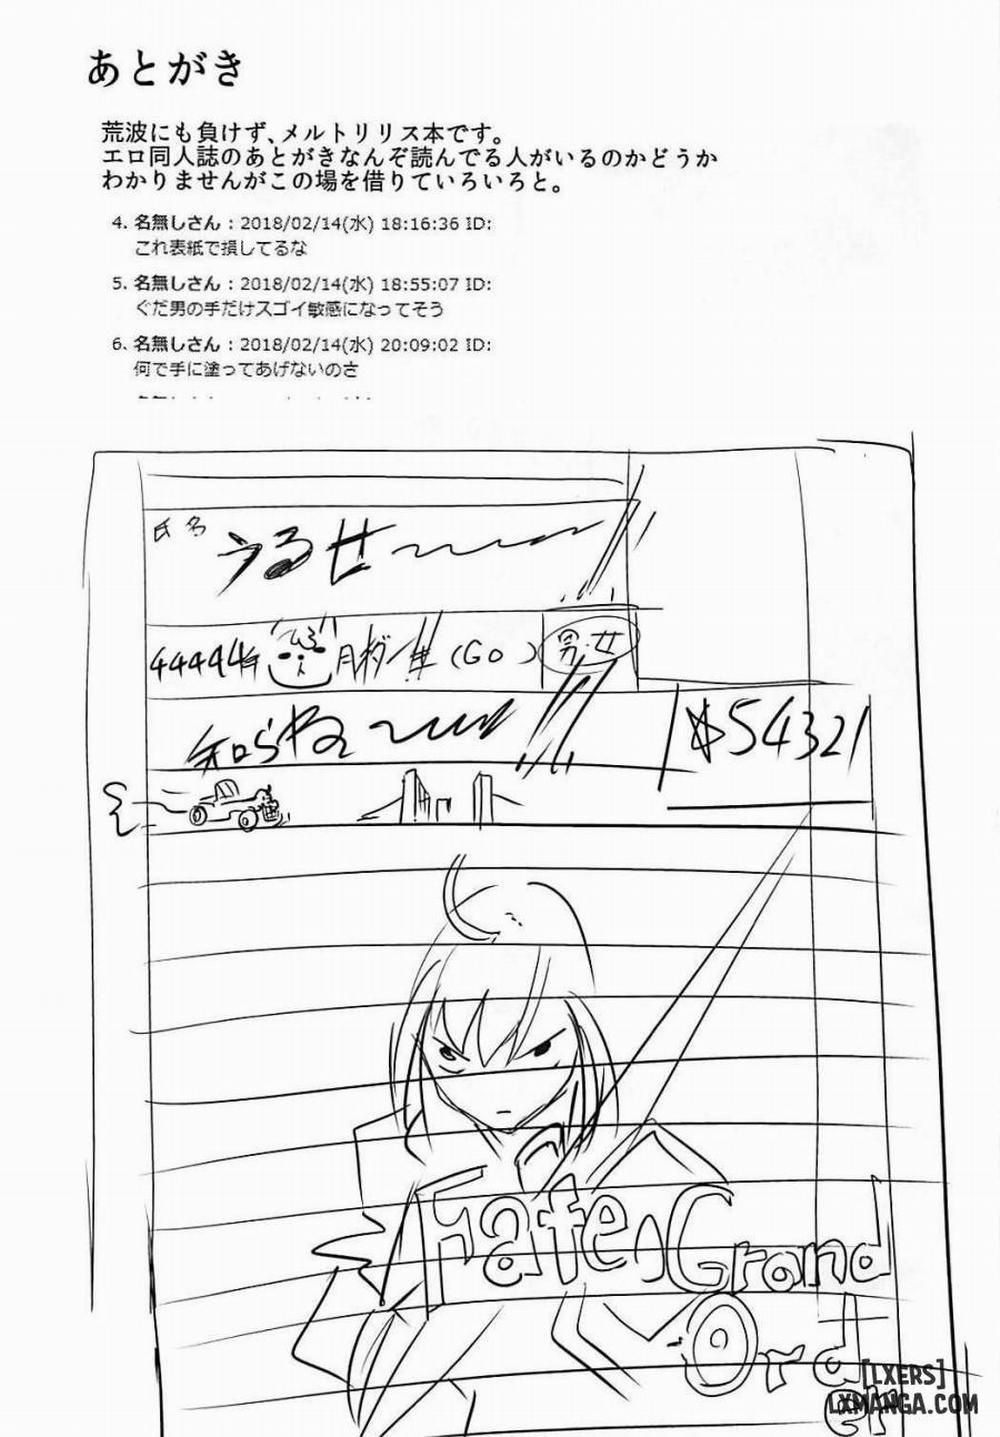 あとがき
荒波にも負けず、メルトリリス本です。
エロ同人誌のあとがきなんぞ読んでる人がいるのかどうか
わかりませんがこの場を借りていろいろと。
4. 名無しさん : 2018/02/14(水) 18:16:36 ID:
これ表紙で損してるな
5. 名無しさん : 2018/02/14(水) 18:55:07 ID:
ぐだ男の手だけスゴイ敏感になってそう
6. 名無しさん : 2018/02/14(水) 20:09:02 ID:
何で手に塗ってあげないのさ
氏名
うるせ
44444年
月
生(GO)
男・女
知らね
54321
Fate
Grand
Order
[LXERS]
LXMANGA.COM